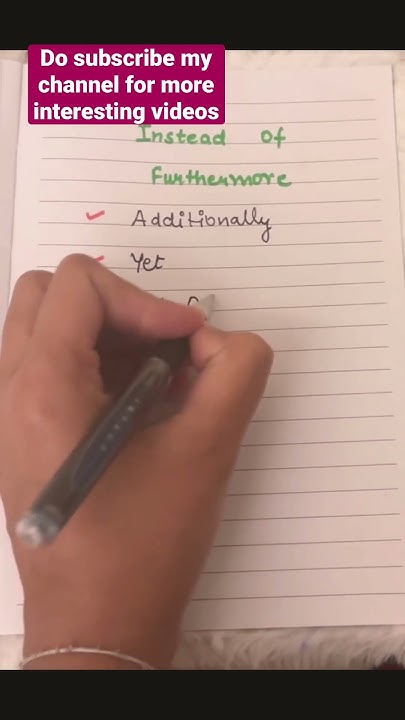 Do subscribe my
channel for more
interesting videos
Instead of
Furthermore
Additionally
Yet